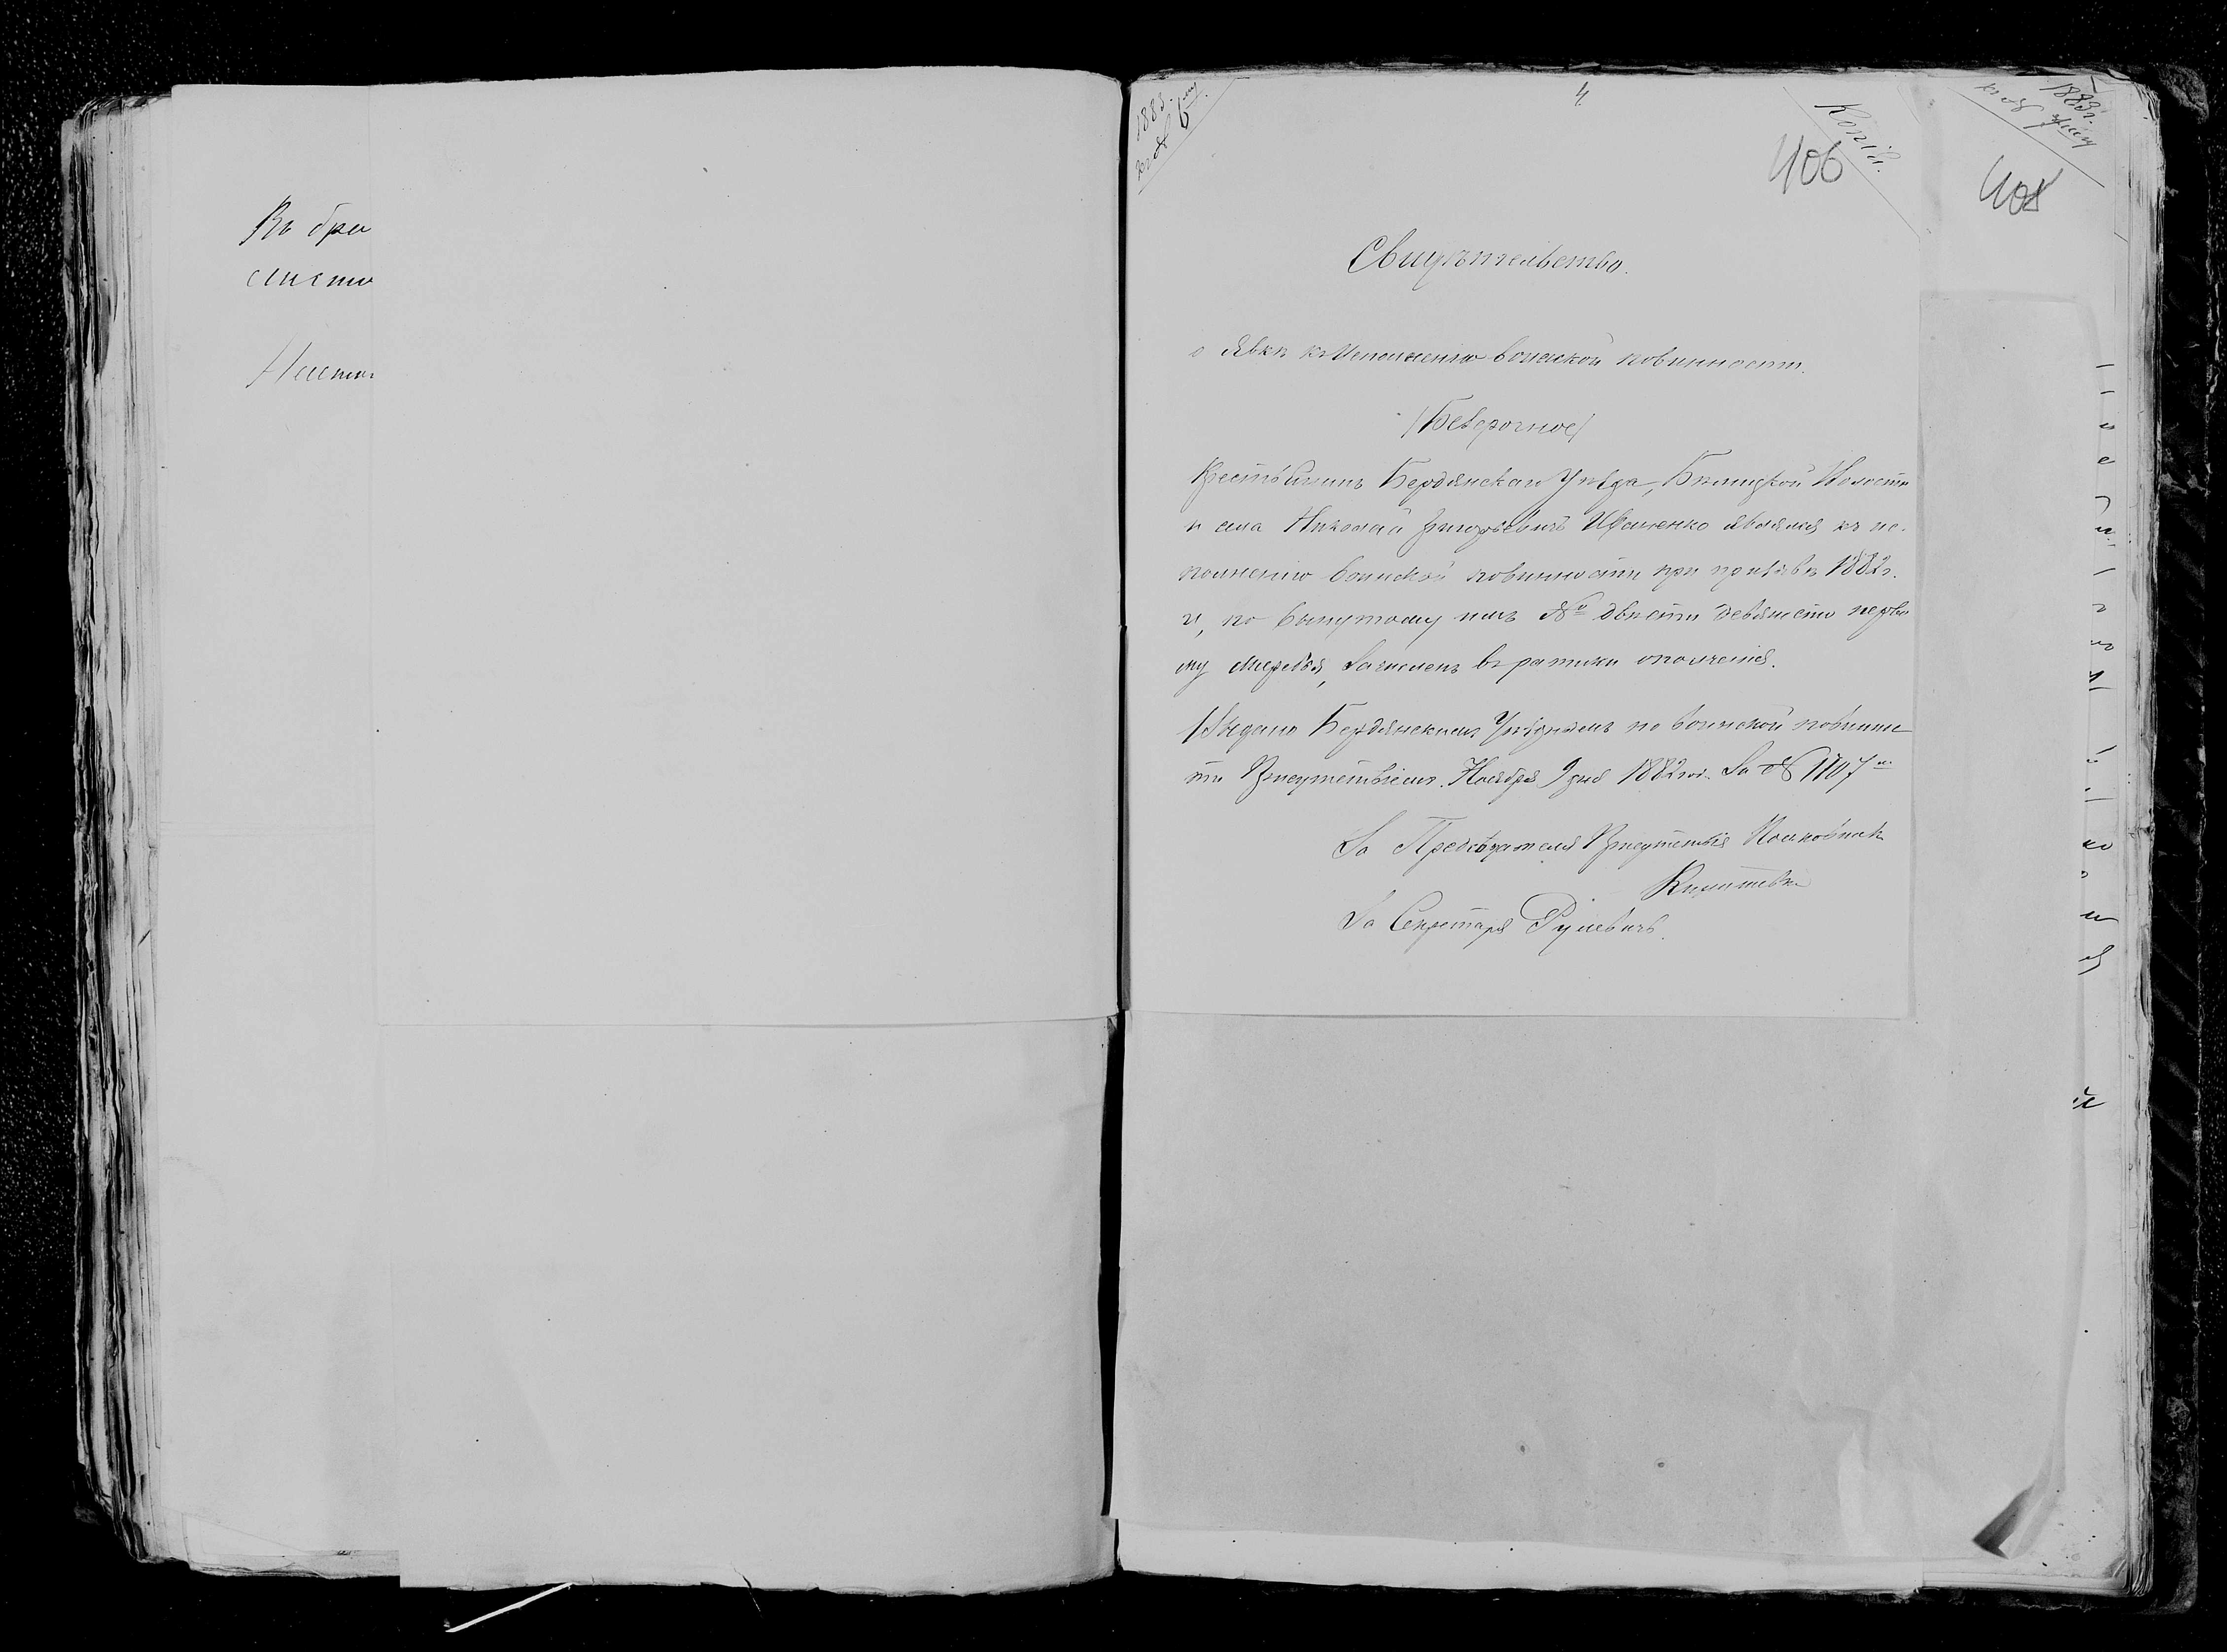 Въ бра
1883.
къ № 6му
4
Копія.
406
1883г.
къ №
408
Свидѣтельство.
о явкѣ къ исполненію воинской повинности.
(Безсрочное)
Крестьянинъ Бердянскаго Уѣзда, Волости
и села Николай Григорьевичъ явился къ ис-
полненію воинской повинности при призывѣ 1882г.
и, по вынутому имъ № двѣсти девяносто перво
му жребья, зачисленъ въ ратники ополченія.
Выдано Бердянскимъ Уѣзднымъ по воинской повинно
ти Присутствіемъ. Ноября 9 дня 1882 год. За № 1107м
За Предсѣдателя Присутствія Полковникъ
За Секретаря